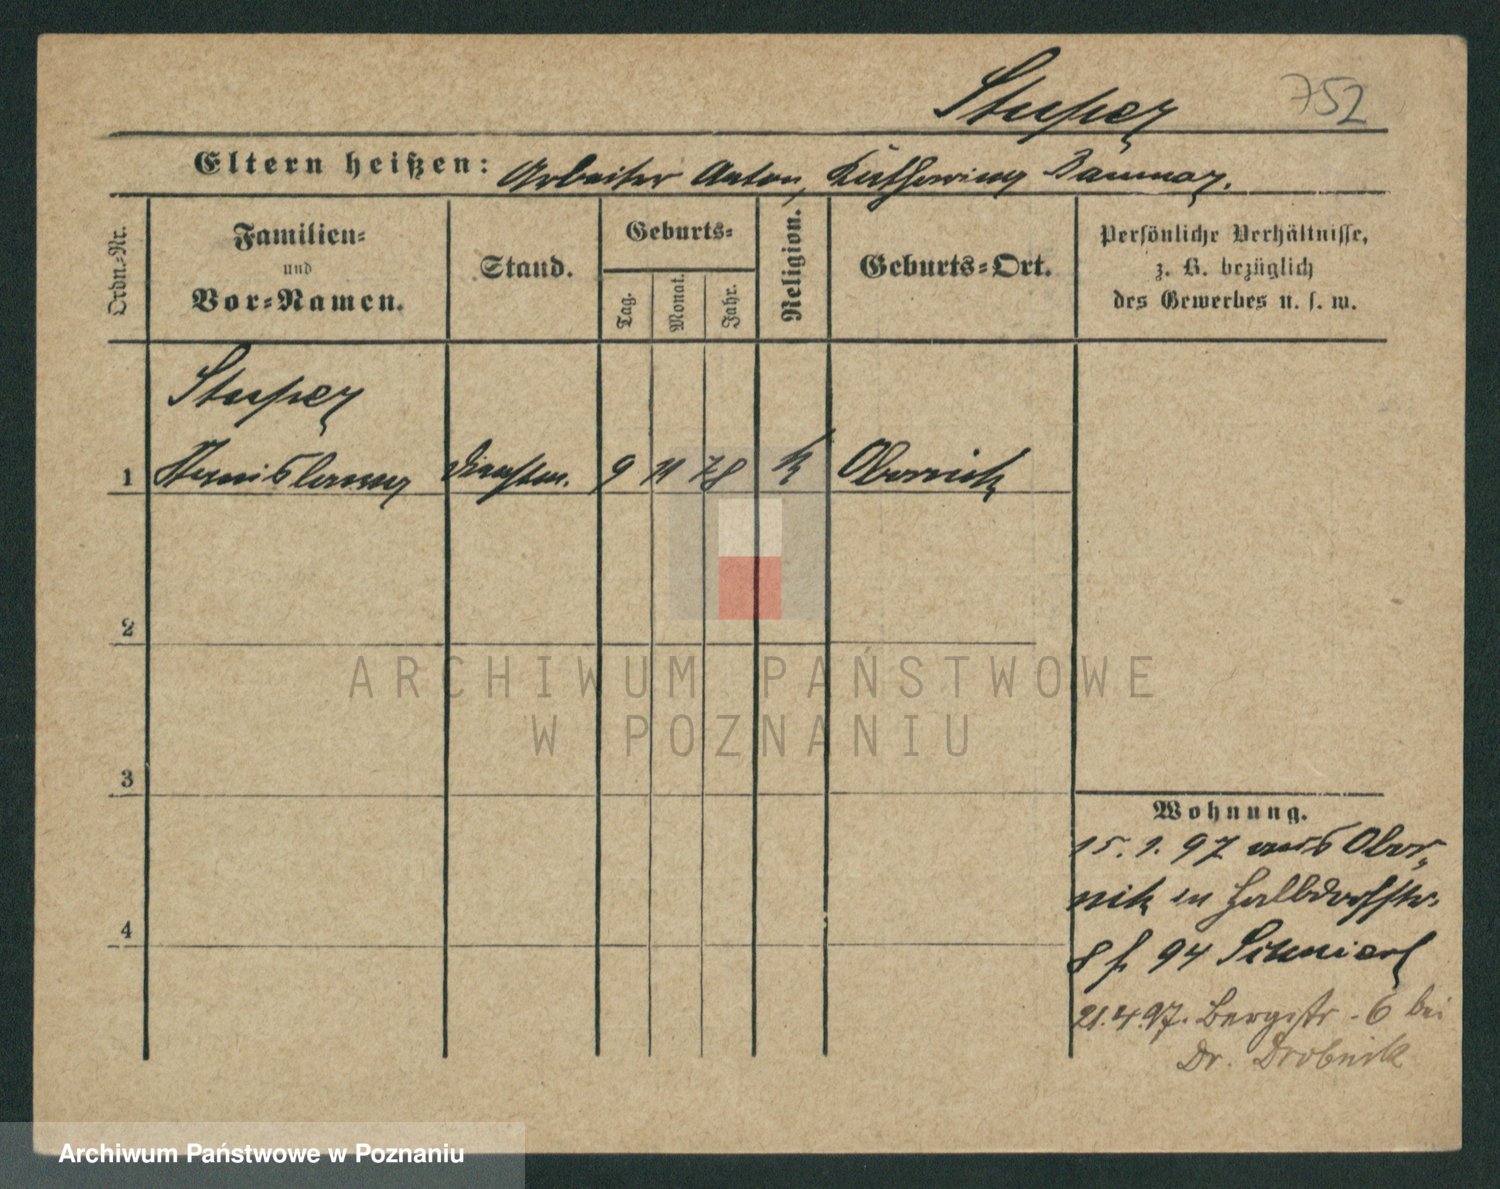 Stuper
752
Eltern heißen: Arbeiter Anton,
Ordn.-Nr.
Familien-
und
Vor-Namen.
Stand.
Geburts-
Tag.
Monat.
Jahr.
Religion.
Geburts-Ort.
Persönliche Verhältnisse,
z. B. bezüglich
des Gewerbes u. s. w.
Stuper
1 Dienstm. 9 11 78 k Obornik
2
3
4
Wohnung.
15. 1. 97 aus Obor-
nik in Halbdorfstr.
8 f. 94
21.4.97. Bergstr. 6 bei
Dr. Drobnik
ARCHIWUM PAŃSTWOWE
W POZNANIU
Archiwum Państwowe w Poznaniu